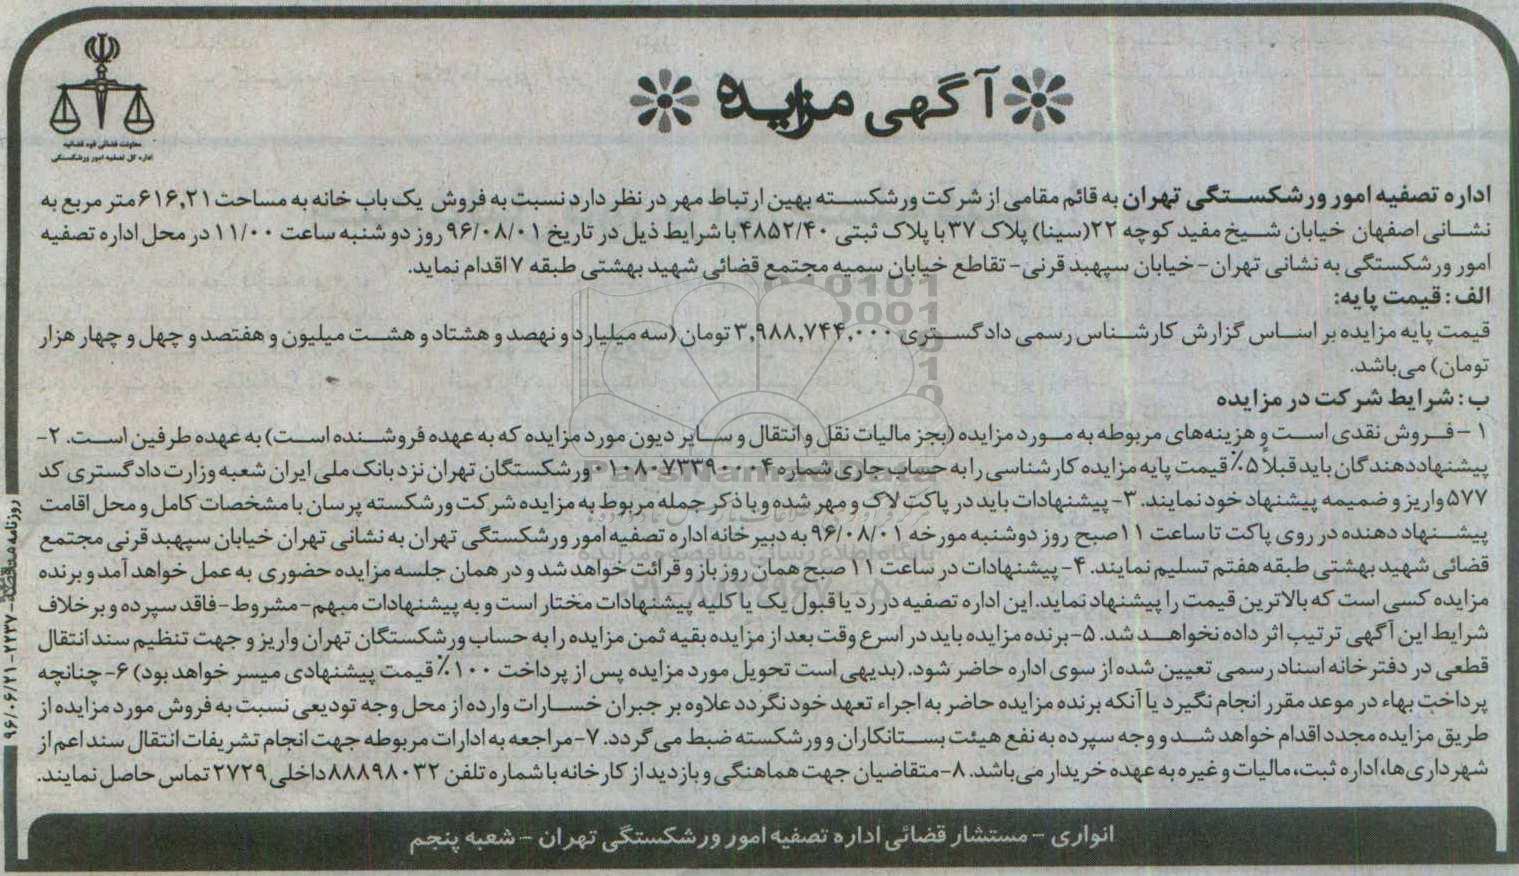 آگهی مزایده
معاونت قضائی قوه قضائیه
اداره کل تصفیه امور ورشکستگی
اداره تصفیه امور ورشکستگی تهران به قائم مقامی از شرکت ورشکسته بهین ارتباط مهر در نظر دارد نسبت به فروش یک باب خانه به مساحت ۶۱۶,۲۱ متر مربع به
نشانی اصفهان خیابان شیخ مفید کوچه ۲۲ (سینا) پلاک ۳۷ با پلاک ثبتی ۴۸۵۲/۴۰ با شرایط ذیل در تاریخ ۹۶/۰۸/۰۱ روز دوشنبه ساعت ۱۱/۰۰ در محل اداره تصفیه
امور ورشکستگی به نشانی تهران - خیابان سپهبد قرنی - تقاطع خیابان سمیه مجتمع قضائی شهید بهشتی طبقه ۷ اقدام نماید.
الف: قیمت پایه:
قیمت پایه مزایده بر اساس گزارش کارشناس رسمی دادگستری ۳,۹۸۸,۷۴۴,۰۰۰ تومان (سه میلیارد و نهصد و هشتاد و هشت میلیون و هفتصد و چهل و چهار هزار
تومان) می‌باشد.
ب: شرایط شرکت در مزایده
۱ - فروش نقدی است و هزینه‌های مربوطه به مورد مزایده (بجز مالیات نقل و انتقال و سایر دیون مورد مزایده که به عهده فروشنده است) به عهده طرفین است. ۲-
پیشنهاددهندگان باید قبلاً ۵٪ قیمت پایه مزایده کارشناسی را به حساب جاری شماره ۰۱۰۸۰۷۳۳۹۰۰۰۴ ورشکستگان تهران نزد بانک ملی ایران شعبه وزارت دادگستری کد
۵۷۷ واریز و ضمیمه پیشنهاد خود نمایند. ۳- پیشنهادات باید در پاکت لاک و مهر شده و با ذکر جمله مربوط به مزایده شرکت ورشکسته پرسان با مشخصات کامل و محل اقامت
پیشنهاد دهنده در روی پاکت تا ساعت ۱۱ صبح روز دوشنبه مورخه ۹۶/۰۸/۰۱ به دبیرخانه اداره تصفیه امور ورشکستگی تهران به نشانی تهران خیابان سپهبد قرنی مجتمع
قضائی شهید بهشتی طبقه هفتم تسلیم نمایند. ۴- پیشنهادات در ساعت ۱۱ صبح همان روز باز و قرائت خواهد شد و در همان جلسه مزایده حضوری به عمل خواهد آمد و برنده
مزایده کسی است که بالاترین قیمت را پیشنهاد نماید. این اداره تصفیه در رد یا قبول یک یا کلیه پیشنهادات مختار است و به پیشنهادات مبهم - مشروط - فاقد سپرده و بر خلاف
شرایط این آگهی ترتیب اثر داده نخواهد شد. ۵- برنده مزایده باید در اسرع وقت بعد از مزایده بقیه ثمن مزایده را به حساب ورشکستگان تهران واریز و جهت تنظیم سند انتقال
قطعی در دفترخانه اسناد رسمی تعیین شده از سوی اداره حاضر شود. (بدیهی است تحویل مورد مزایده پس از پرداخت ۱۰۰٪ قیمت پیشنهادی میسر خواهد بود) ۶- چنانچه
پرداخت بهاء در موعد مقرر انجام نگیرد یا آنکه برنده مزایده حاضر به اجراء تعهد خود نگردد علاوه بر جبران خسارات وارده از محل وجه تودیعی نسبت به فروش مورد مزایده از
طریق مزایده مجدد اقدام خواهد شد و وجه سپرده به نفع هیئت بستانکاران و ورشکسته ضبط می گردد. ۷- مراجعه به ادارات مربوطه جهت انجام تشریفات انتقال سند اعم از
شهرداری‌ها، اداره ثبت، مالیات و غیره به عهده خریدار می‌باشد. ۸- متقاضیان جهت هماهنگی و بازدید از کارخانه با شماره تلفن ۸۸۸۹۸۰۳۲ داخلی ۲۷۲۹ تماس حاصل نمایند.
انواری - مستشار قضائی اداره تصفیه امور ورشکستگی تهران - شعبه پنجم
روزنامه مناقصه - ۲۲۳۷ - ۹۶/۰۶/۲۱
ParsNamadData